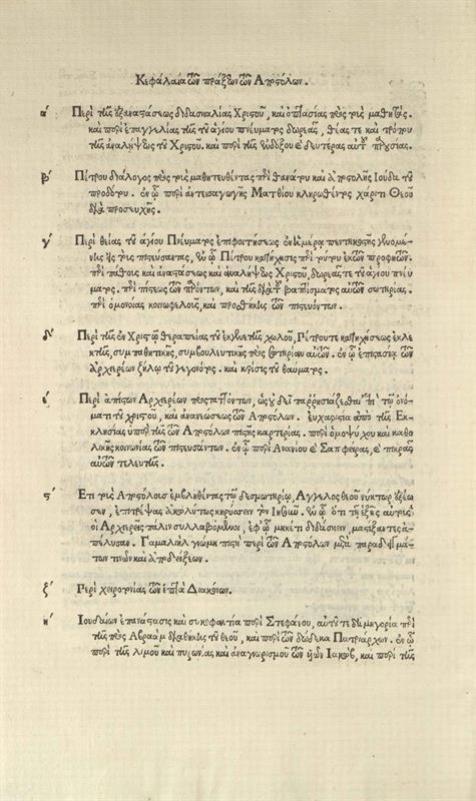 Κεφάλαια τῶν πράξεων τῶν Αποστόλων.
α΄ Περὶ τῆς ἐξ ἀναστάσεως διδασκαλίας Χριστοῦ, καὶ ὀπτασίας πρὸς τοὺς μαθητάς.
καὶ περὶ ἐπαγγελίας τῆς τοῦ ἁγίου πνεύματος δωρεᾶς, θέας τε καὶ τρόπου
τῆς ἀναλήψεως τοῦ Χριστοῦ. καὶ περὶ τῆς ἐνδόξου & δευτέρας αὐτοῦ παρουσίας.
β΄ Πέτρου διάλογος πρὸς τοὺς μαθητευθέντας περὶ θανάτου καὶ ἀποβολῆς Ιούδα τοῦ
προδότου. ἐν ᾧ περὶ ἀντεισαγωγῆς Ματθίου κληρωθέντος χάριτι Θεοῦ
διὰ προσευχῆς.
γ΄ Περὶ θείας τοῦ ἁγίου Πνεύματος ἐπιφοιτήσεως ἐν ἡμέρᾳ πεντηκοστῆς γενομέ-
νης εἰς τοὺς πιστεύσαντας, ἐν ᾧ Πέτρου κατήχησις περὶ τούτου ἐκ τῶν προφητῶν.
περὶ πάθους καὶ ἀναστάσεως καὶ ἀναλήψεως Χριστοῦ, δωρεᾶς τε τοῦ ἁγίου πνεύ
ματος. περὶ πίστεως τῶν παρόντων, καὶ τῆς διὰ τοῦ βαπτίσματος αὐτῶν σωτηρίας.
περὶ ὁμονοίας κοινωφελοῦς, καὶ προσθήκης τῶν πιστευόντων.
δ΄ Περὶ τῆς ἐν Χριστῷ θεραπείας τοῦ ἐκ γενετῆς χωλοῦ, Πέτρου τε κατηχήσεως ἐλεγ
κτικῆς, συμπαθητικῆς, συμβουλευτικῆς πρὸς σωτηρίαν αὐτῶν. ἐν ᾧ ἐπιστασία τῶν
ἀρχιερέων ζήλῳ τοῦ γεγονότος. καὶ κρίσις τοῦ θαύματος.
Περὶ ἀπίστων Αρχιερέων
ματι τοῦ χριστοῦ, καὶ ἀνανεώσεως τῶν Αποστόλων. εὐχαριστία ἀπὸ τῆς Εκ-
κλησίας ὑπὲρ τῆς τῶν Αποστόλων πιστῆς καρτερίας. περὶ ὁμοψύχου καὶ καθο
λικῆς κοινωνίας τῶν πιστευσάντων. ἐν ᾧ περὶ Ανανίου & Σαπφείρας, & πικρᾶς
αὐτῶν τελευτῆς.
ϛ΄ Ετι τοὺς Αποστόλους ἐμβληθέντας τῷ δεσμωτηρίῳ, Αγγελος θεοῦ νύκτωρ ἐξέω
σεν, ἐπιτρέψας ἀκωλύτως κηρύσσειν τὸν Ιησοῦν. ἐν ᾧ ὅτι τῇ ἑξῆς αὐτοὺς
οἱ Αρχιερεῖς πάλιν συλλαβόμενοι, ἐφ᾽ ᾧ μηκέτι διδάσκειν μαστίξαντες ἀ-
πέλυσαν. Γαμαλιὴλ γνώμη πιστὴ περὶ τῶν Αποστόλων μετὰ παραδειγμά-
των τινῶν καὶ ἀποδείξεων.
ζ΄ Περὶ χειροτονίας τῶν ἑπτὰ Διακόνων.
η΄ Ιουδαίων ἐπανάστασις καὶ συκοφαντία περὶ Στεφάνου, αὐτοῦ τε δημηγορία περὶ
τῆς πρὸς Αβραὰμ διαθήκης τοῦ θεοῦ, καὶ περὶ τῶν δώδεκα Πατριάρχων. ἐν ᾧ
περὶ τῆς λιμοῦ καὶ πυρωνίας καὶ ἀναγνωρισμοῦ τῶν υἱῶν Ιακὼβ, καὶ περὶ τῆς